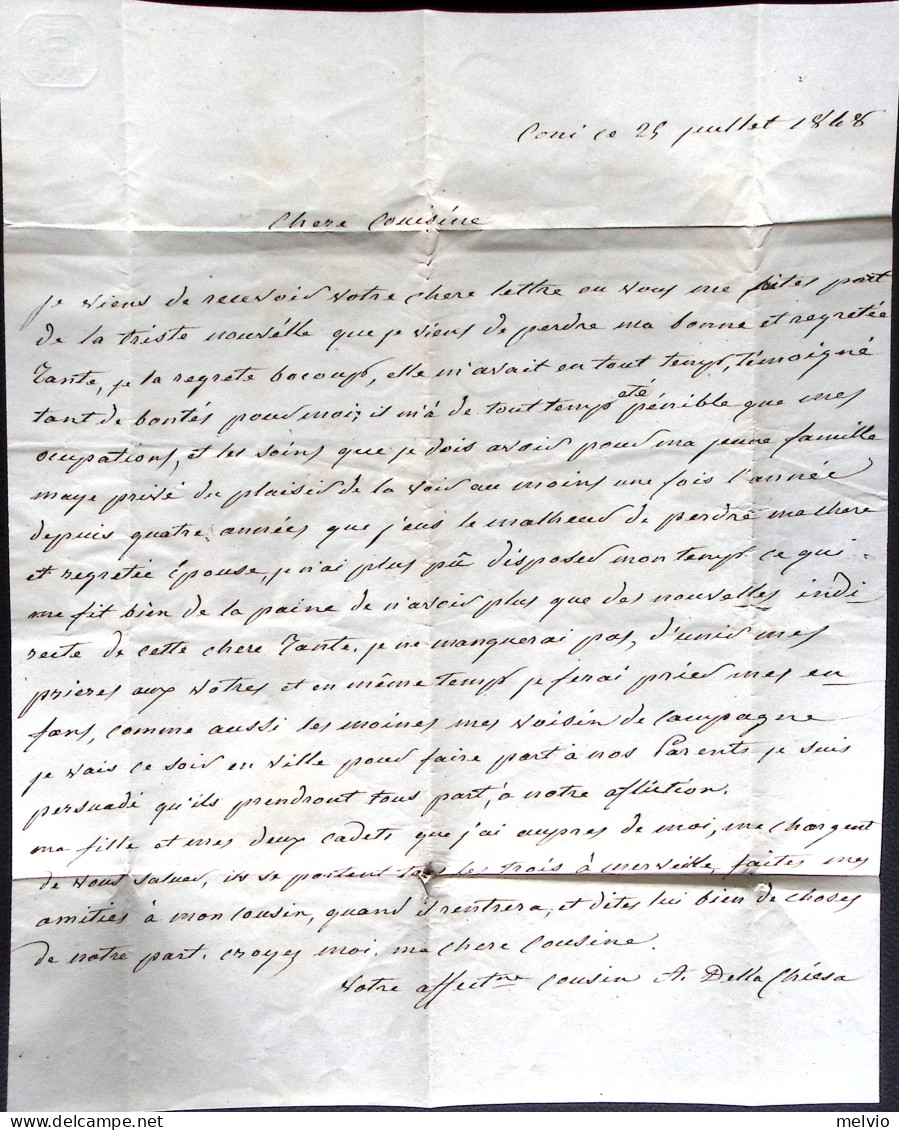 Coni ce 25 juillet 1848
Chere Cousine
je viens de recevoir votre chere lettre ou vous me faites part
de la triste nouvélle que je viens de perdre ma bonne et regretée
Tante, je la regrete bocoup, elle m'avait en tout temps, témoigné
tant de bontés pour moi; il m'à de tout temp eté pénible que mes
ocupations, et les soins que je dois avoir pour ma jeune famille
maye privé du plaisir de la voir au moins une fois l'année
depuis quatre années que j'eus le malheur de perdre ma chere
et regretée Épouse, je n'ai plus pû disposer mon temp ce qui
me fit bien de la paine de n'avoir plus que des nouvelles indi
recte de cette chere Tante. je ne manquerai pas, d'unir mes
prieres aux votres et en même temp je ferai prier mes en
fans, comme aussi les moines mes voisin de Campagne
je vais ce soir en ville pour faire part à nos Parents je suis
persuadé qu'ils prendront tous part, à notre afliction.
ma fille et mes deux cadets que j'ai aupres de moi, me chargent
de vous saluer, ils se portent tous les trois à merveille, faites mes
amitiés à mon Cousin, quand il rentrera, et dites lui bien de choses
de notre part. croyez moi, ma chere Cousine.
Votre affect.ne Cousin A. Della Chiésa
melvio